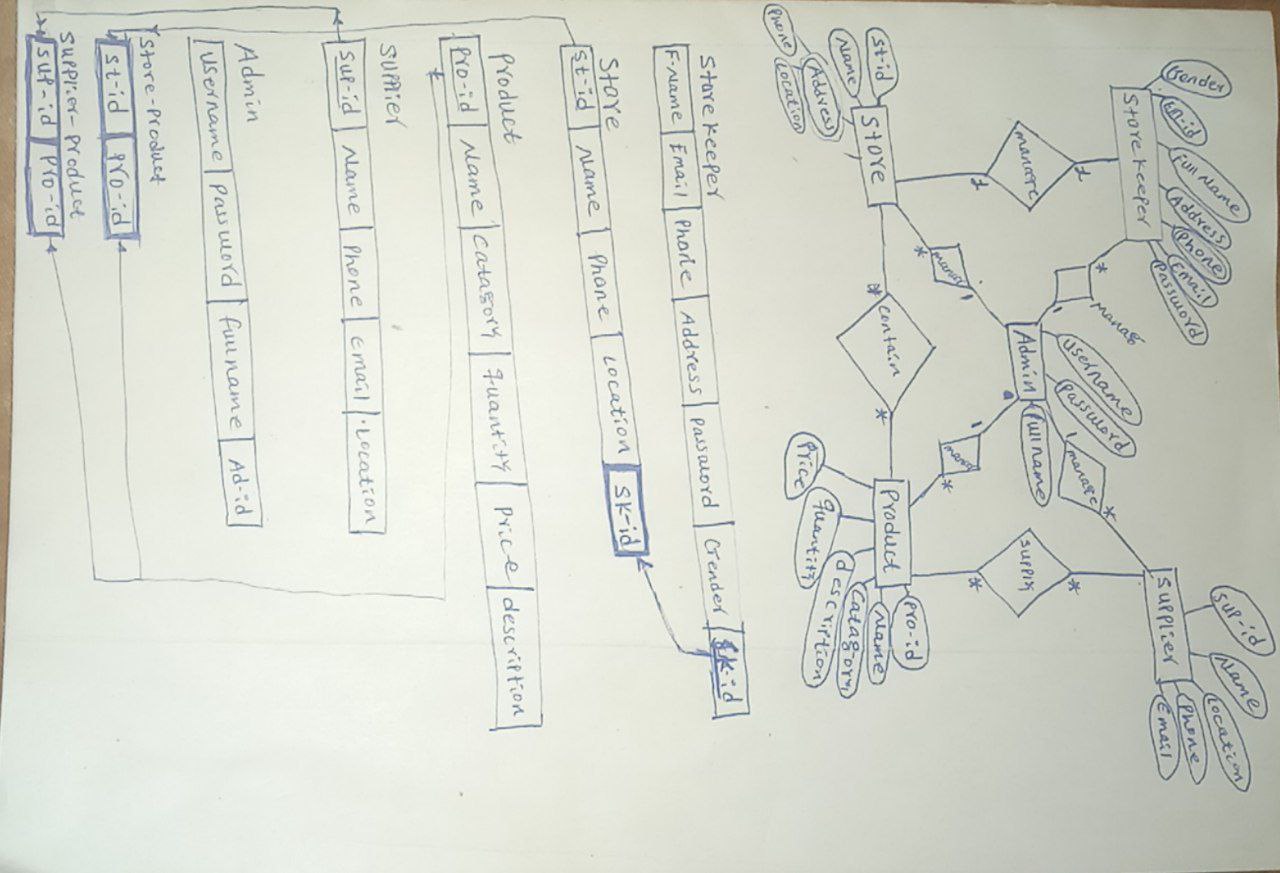 Gender
En-id
Full Name
Address
Phone
Email
Password
Store keeper
Sup-id
Name
Location
Phone
Email
Supplier
*
manag
1
Username
Password
Full name
Admin
1
manage
*
1
manage
1
*
supply
*
1
manag
*
1
manag
*
St-id
Name
Address
Phone
Location
Store
*
contain
*
Product
Pro-id
Name
Catagory
description
quantity
Price
Store keeper
F-Name Email Phone Address Password Gender Sk-id
Store
St-id Name Phone Location SK-id
Product
Pro-id Name Catagory quantity Price description
Supplier
Sup-id Name Phone Email Location
Admin
Username Password fullname Ad-id
Store-Product
St-id Pro-id
Supplier-Product
Sup-id Pro-id